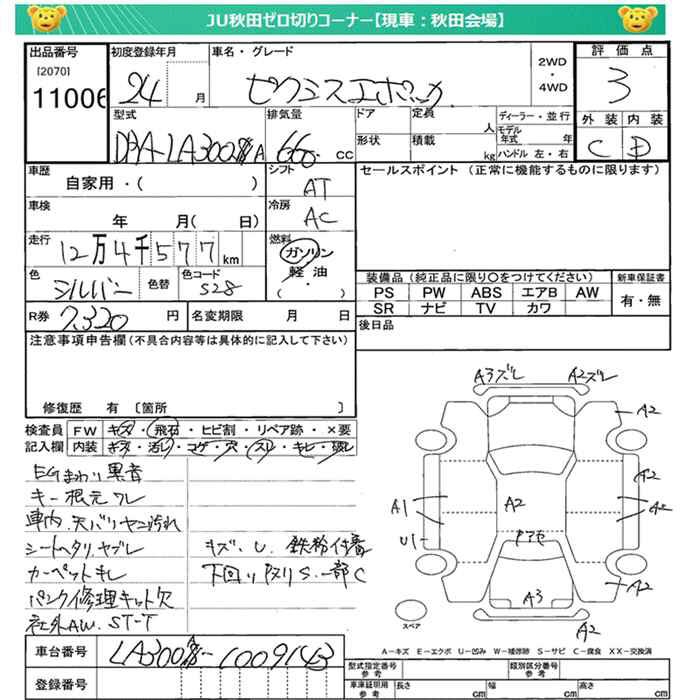 JU秋田ゼロ切りコーナー【現車：秋田会場】
出品番号
[2070]
11006
初度登録年月
24 月
車名・グレード
ピクシスエポック
2WD
・
4WD
評価点
3
外装 内装
C D
型式
DBA-LA300A
排気量
660 cc
ドア
定員
人
形状
積載
kg
ディーラー・並行
モデル
年式
年
ハンドル 左・右
車歴
自家用・( )
シフト
AT
車検
年 月( 日)
冷房
AC
走行
12万4千577km
燃料
ガソリン
軽油
( ・ )
色
シルバー
色替
色コード
S28
R券
7,320 円
名変期限 月 日
セールスポイント (正常に機能するものに限ります)
装備品(純正品に限り○をつけてください)
PS PW ABS エアB AW
SR ナビ TV カワ
新車保証書
有・無
後日品
注意事項申告欄(不具合内容等は具体的に記入して下さい)
修復歴 有 〔箇所 〕
検査員
記入欄
FW キズ・飛石・ヒビ割・リペア跡・×要
内装 キズ・汚レ・コゲ・穴・スレ・キレ・破レ
EGまわり異音
キー根元ワレ
車内 天バリヤニ汚れ
シートヘタリ、ヤブレ
カーペットキレ
パンク修理キット欠
社外AW. ST-T
キズ、U、鉄粉付着
下回りサビS.一部C
A3ズレ A2ズレ
A2
A2
A2
A2
A1
U1
A2
A3
A2
A2
スペア
A-キズ E-エクボ U-凹み W-補修跡 S-サビ C-腐食 XX-交換済
車台番号
LA300A-1009143
登録番号
型式指定番号
参考
類別区分番号
参考
車庫証明用
参考
長さ cm 幅 cm 高さ cm